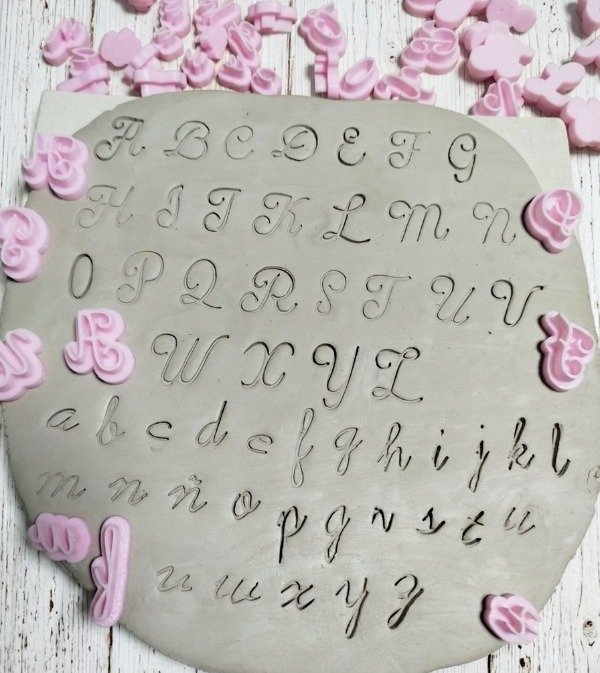 A B C D E F G
H I J K L M N
O P Q R S T U V
W X Y Z
a b c d e f g h i j k l
m n ñ o p q r s t u
u w x y z